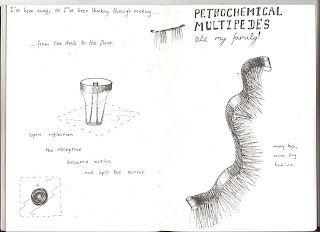 I've been away, so I've been thinking through making...
... from the desk to the floor.
Upon reflection
the receptive
became active
and split the mirror.
PETROCHEMICAL
MULTIPEDES
ate my family!
many legs,
hairy
bodies.